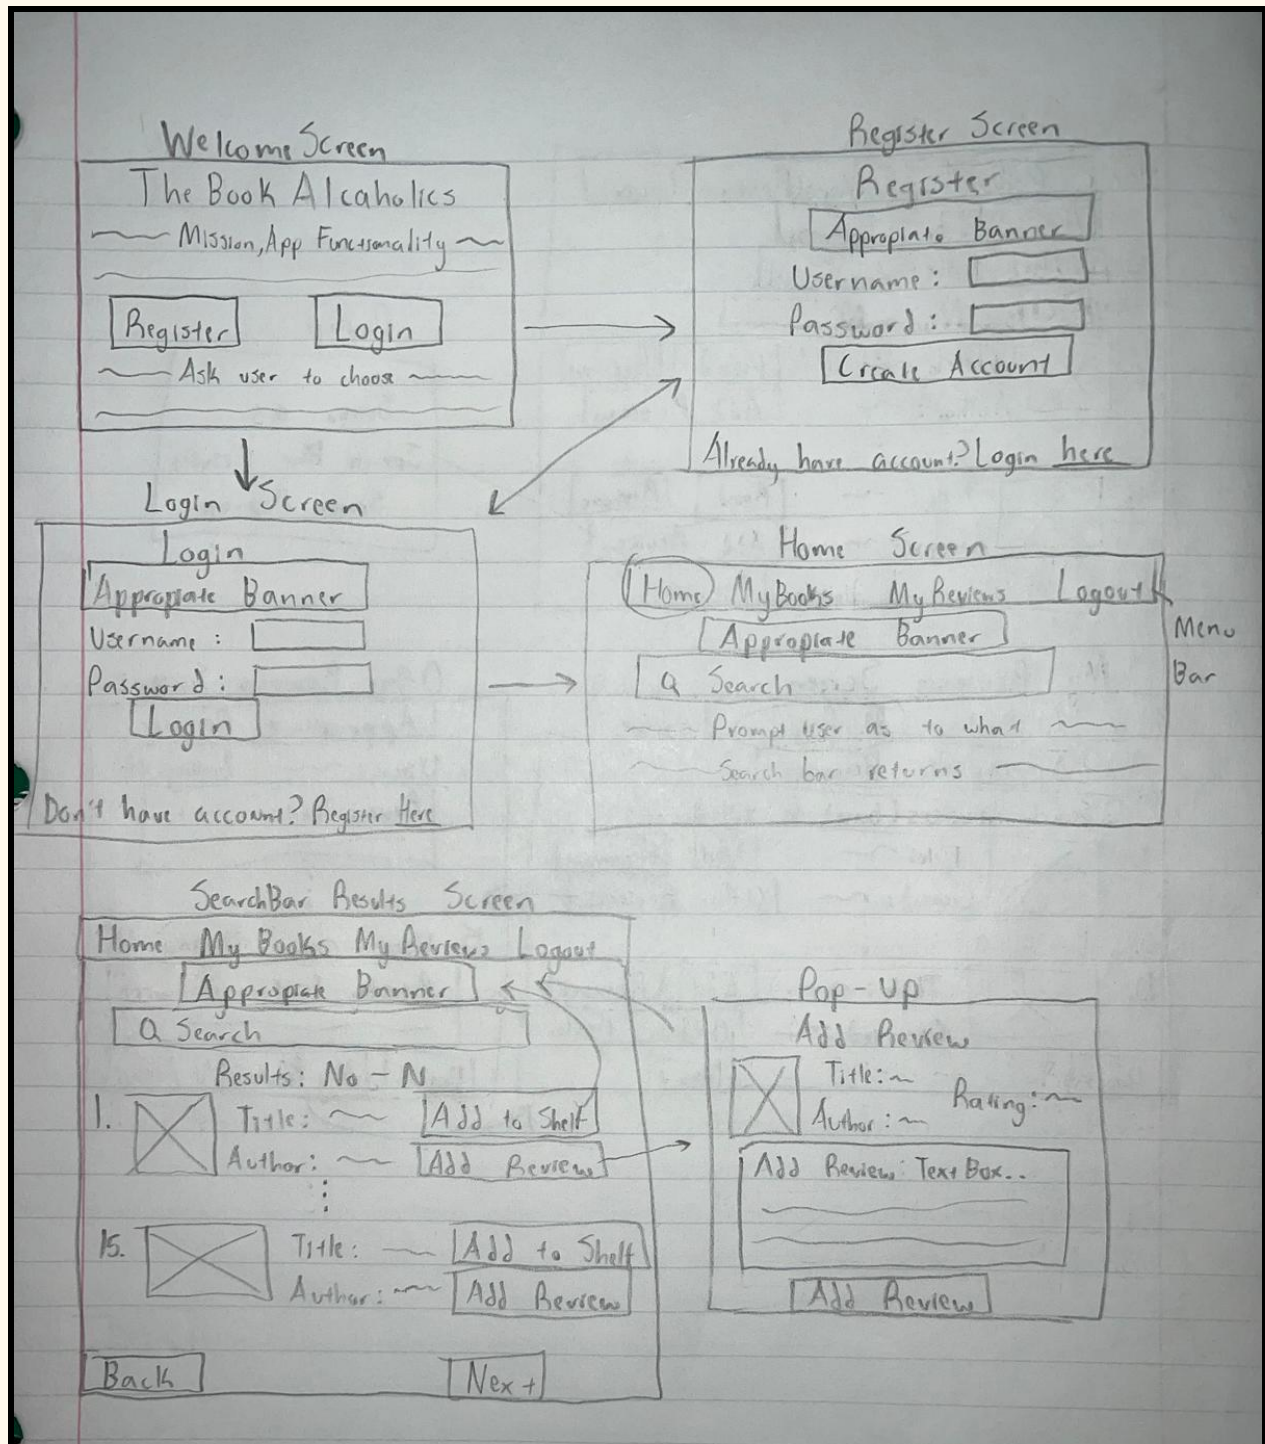 Welcome Screen
The Book Alcaholics
Mission, App Functionality
Register Login
Ask user to choose
Register Screen
Register
Appropiate Banner
Username:
Password:
Create Account
Already have account? Login here
Login Screen
Login
Appropiate Banner
Username:
Password:
Login
Don't have account? Register Here
Home Screen
Home MyBooks MyReviews Logout
Menu
Bar
Appropiate Banner
Search
Prompt user as to what
Search bar returns
SearchBar Results Screen
Home My Books My Reviews Logout
Appropiate Banner
Search
Results: No - N
1. Title: Add to Shelf
Author: Add Review
15. Title: Add to Shelf
Author: Add Review
Back Next
Pop-up
Add Review
Title:
Rating:
Author:
Add Review: Text Box..
Add Review